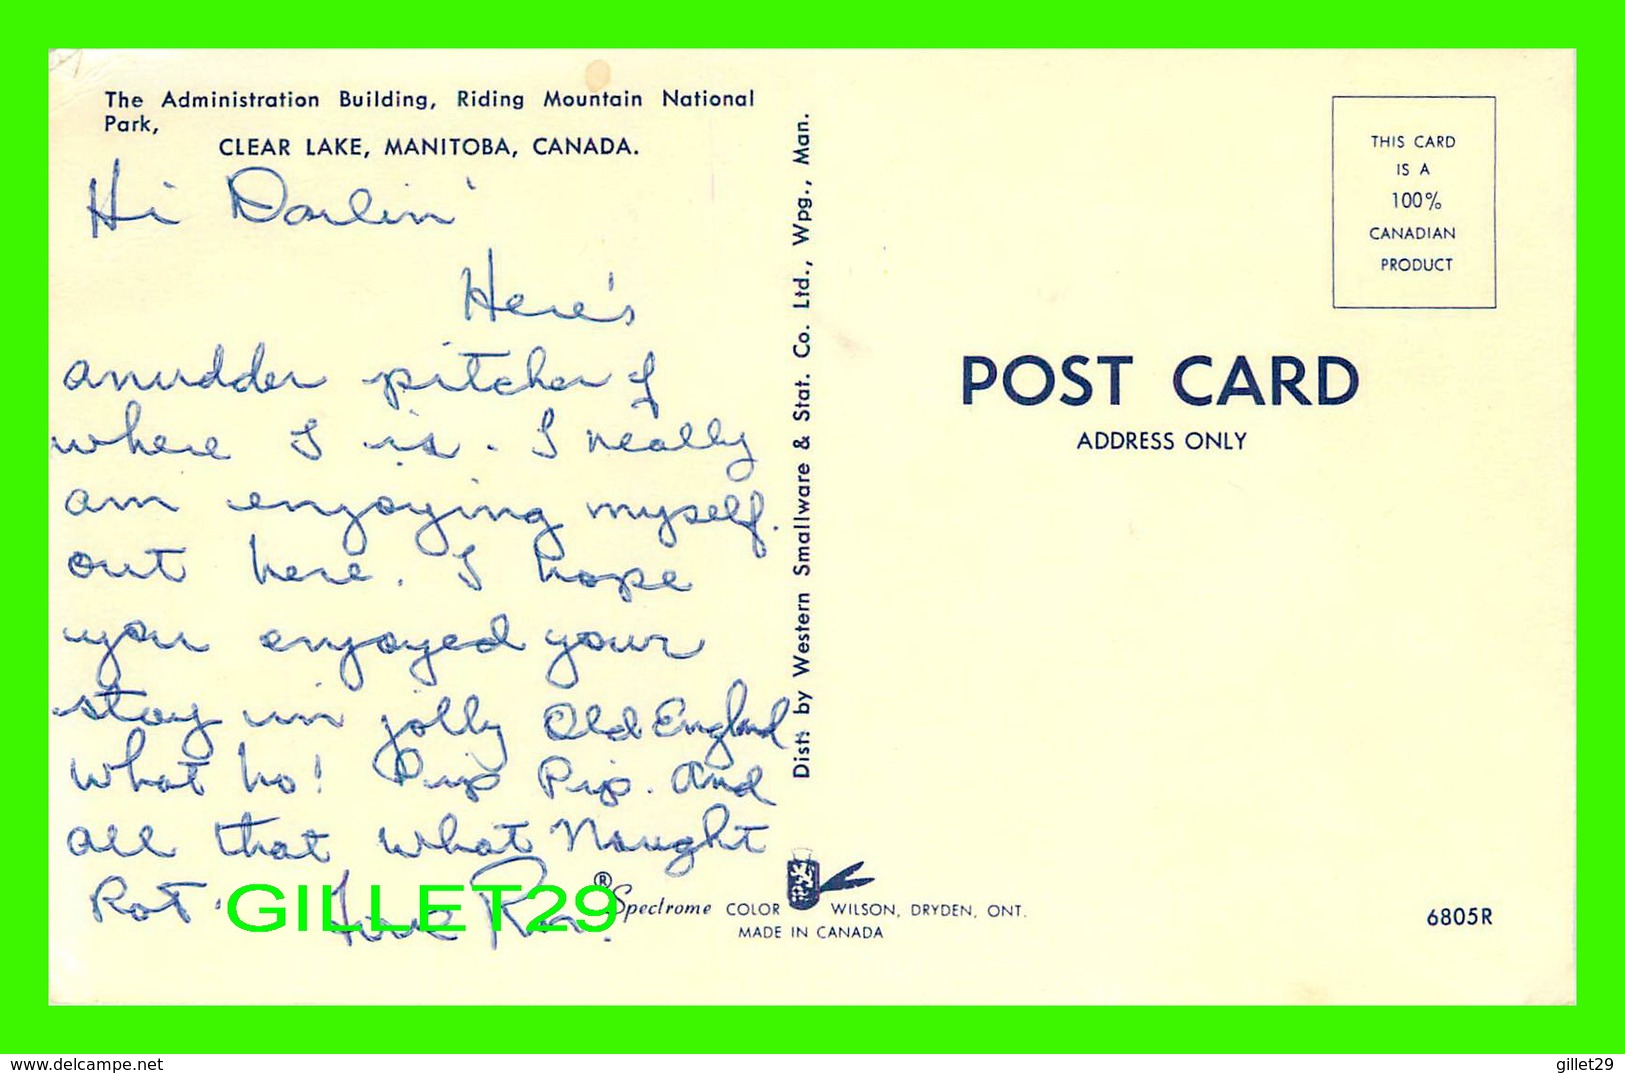 The Administration Building, Riding Mountain National
Park,
CLEAR LAKE, MANITOBA, CANADA.
Hi Darlin'
Here's
anudder pitcher of
where I is. I really
am enjoying myself.
out here. I hope
you enjoyed your
stay in jolly Old England
What ho! Pip Pip. And
all that what Nought
Rot.
Love Ron.
GILLET29
Dist. by Western Smallware & Stat. Co. Ltd., Wpg., Man.
THIS CARD
IS A
100%
CANADIAN
PRODUCT
POST CARD
ADDRESS ONLY
® Spectrome COLOR WILSON, DRYDEN, ONT.
MADE IN CANADA
6805R
www.delcampe.net
gillet29